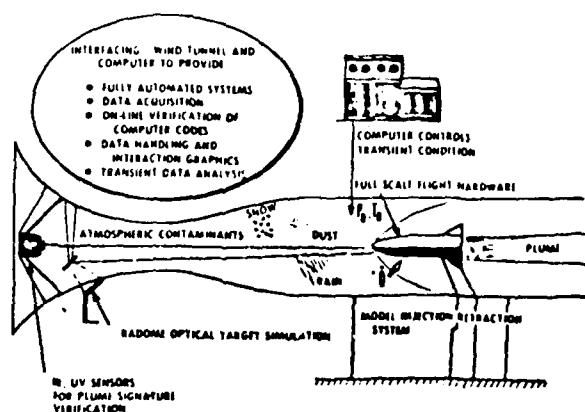 INTERFACING WIND TUNNEL AND
COMPUTER TO PROVIDE
● FULLY AUTOMATED SYSTEMS
● DATA ACQUISITION
● ON-LINE VERIFICATION OF
COMPUTER CODES
● DATA HANDLING AND
INTERACTION GRAPHICS
● TRANSIENT DATA ANALYSIS
COMPUTER CONTROLS
TRANSIENT CONDITION
FULL SCALE FLIGHT HARDWARE
SNOW
ATMOSPHERIC CONTAMINANTS
DUST
PLUME
RAIN
MODEL INJECTION RETRACTION
SYSTEM
RADOME OPTICAL TARGET SIMULATION
UV SENSORS
FOR PLUME SIGNATURE
VERIFICATION